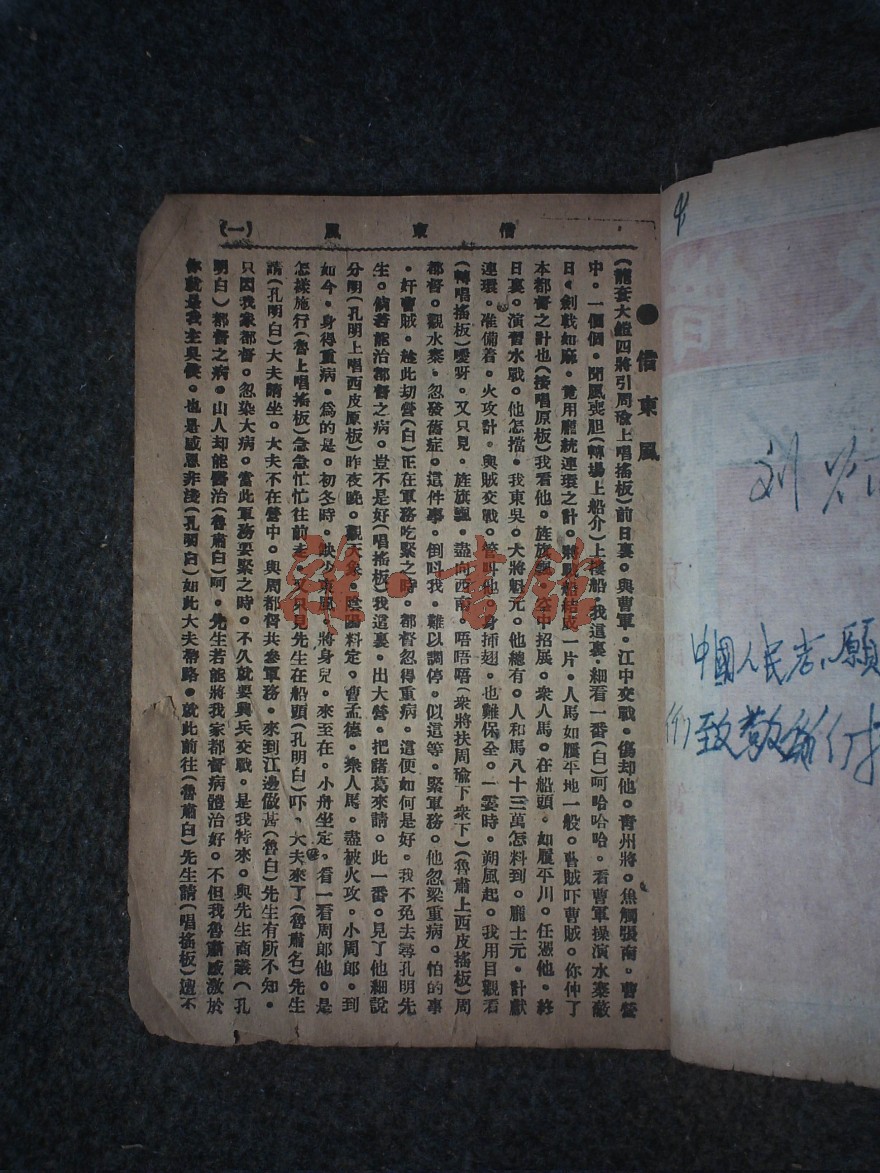 借東風 (一)
借東風
(龍套大鎧四將引周瑜上唱搖板)前日裏。與曹軍。江中交戰。傷却他。青州將。焦觸張南。曹營
中。一個個。聞風喪胆(轉場上船介)上樓船。我這裏。細看一番(白)呵哈哈哈。看曹軍操演水寨蔽
日。劍戟如麻。竟用龐統連環之計。將戰船結成一片。人馬如履平地一般。曹賊吓曹賊。你仲了
本都督之計也(接唱原板)我看他。旌旗飄。空中招展。衆人馬。在船頭。如履平川。任憑他。終
日裏。演習水戰。他怎擋。我東吳。大將魁元。他總有。人和馬八十三萬怎料到。龐士元。計獻
連環。准備着。火攻計。與賊交戰。管叫他。身揷翅。也難保全。一霎時。朔風起。我用目觀看
(轉唱搖板)嗳呀。又只見。旌旗飄。盡向西南。唔唔唔(衆將扶周瑜下衆下)(魯肅上西皮搖板)周
都督。觀水寨。忽發舊症。這件事。倒呌我。難以調停。似這等。緊軍務。他忽染重病。怕的事
。奸曹賊。趁此刧營(白)正在軍務吃緊之時。都督忽得重病。這便如何是好。我不免去尋孔明先
生。倘若能治都督之病。豈不是好(唱搖板)我這裏。出大營。把諸葛來請。此一番。見了他細說
分明(孔明上唱西皮原板)昨夜晚。觀天象。陰陽料定。曹孟德。衆人馬。盡被火攻。小周郎。到
如今。身得重病。爲的是。初冬時。缺少東風。將身兒。來至在。小舟坐定。看一看周郎他。是
怎樣施行(魯上唱搖板)急急忙忙往前走。又只見先生在船頭(孔明白)吓。大夫來了(魯肅名)先生
請(孔明白)大夫請坐。大夫不在營中。與周都督共叅軍務。來到江邊做甚(魯白)先生有所不知。
只因我家都督。忽染大病。當此軍務要緊之時。不久就要興兵交戰。是我特來。與先生商議(孔
明白)都督之病。山人却能醫治(魯肅白)呵。先生若能將我家都督病體治好。不但我魯肅感激於
你就是我主吳侯。也是感恩非淺(孔明白)如此大夫帶路。就此前往(魯肅白)先生請(唱搖板)這不
雜·書館
刘
中國人民志願
致敬